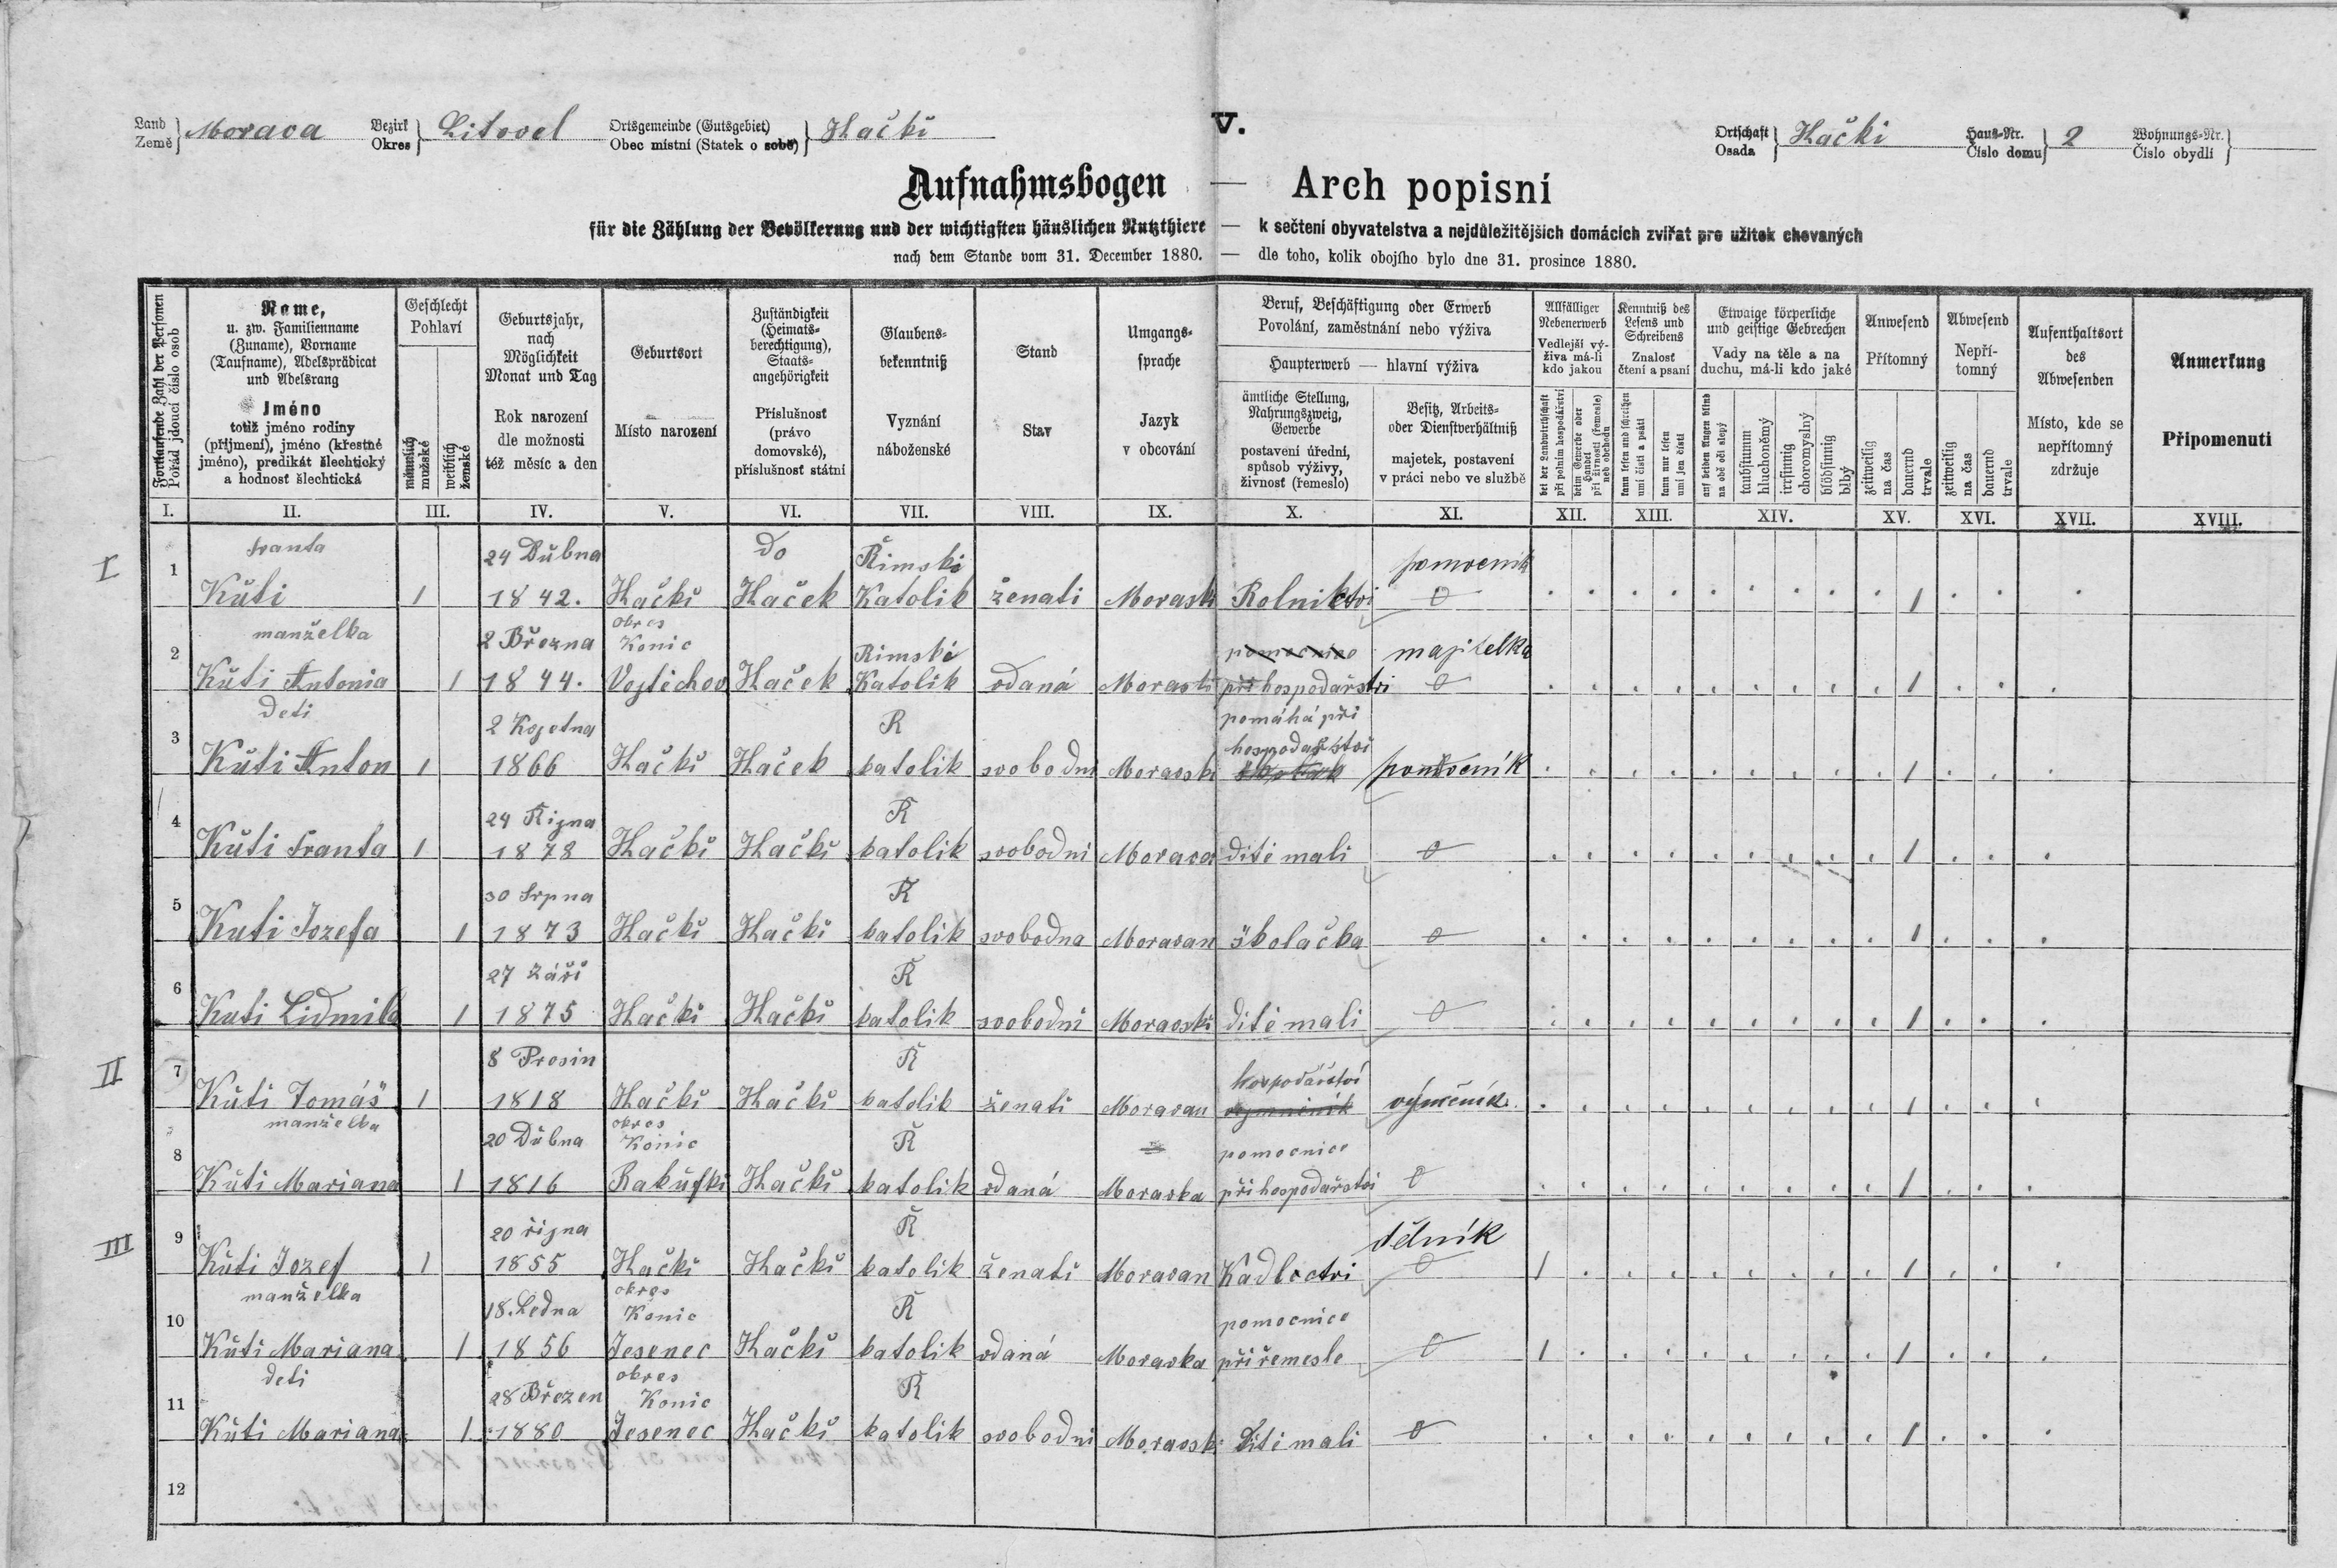 V.
Land Země } Morava Bezirk Okres } Litovel Ortsgemeinde (Gutsgebiet) Obec místní (Statek o sobě) } Hački Ortschaft Osada } Hački Haus-Nr. Číslo domu } 2 Wohnungs-Nr. Číslo obydlí }
Aufnahmsbogen — Arch popisní
für die Zählung der Bevölkerung und der wichtigsten häuslichen Nutzthiere — k sečtení obyvatelstva a nejdůležitějších domácích zvířat pro užitek chovaných
nach dem Stande vom 31. December 1880. — dle toho, kolik obojího bylo dne 31. prosince 1880.
Fortlaufende Zahl der Personen
Pořád jdoucí číslo osob
Name,
u. zw. Familienname
(Zuname), Vorname
(Taufname), Adelsprädicat
und Adelsrang
Jméno
totiž jméno rodiny
(příjmení), jméno (křestné
jméno), predikát šlechtický
a hodnosť šlechtická
Geschlecht
Pohlaví
männlich
mužské
weiblich
ženské
Geburtsjahr,
nach
Möglichkeit
Monat und Tag
Rok narození
dle možnosti
též měsíc a den
Geburtsort
Místo narození
Zuständigkeit
(Heimats-
berechtigung),
Staats-
angehörigkeit
Příslušnosť
(právo
domovské),
příslušnosť státní
Glaubens-
bekenntniß
Vyznání
náboženské
Stand
Stav
Umgangs-
sprache
Jazyk
v obcování
Beruf, Beschäftigung oder Erwerb
Povolání, zaměstnání nebo výživa
Haupterwerb — hlavní výživa
ämtliche Stellung,
Nahrungszweig,
Gewerbe
postavení úřední,
spůsob výživy,
živnosť (řemeslo)
Besitz, Arbeits-
oder Dienstverhältniß
majetek, postavení
v práci nebo ve službě
Allfälliger
Nebenerwerb
Vedlejší vý-
živa má-li
kdo jakou
bei der Landwirthschaft
při polním hospodářství
beim Gewerbe oder
Handel
při živnosti (řemesle)
neb obchodu
Kenntniß des
Lesens und
Schreibens
Znalosť
čtení a psaní
kann lesen und schreiben
umí čísti a psáti
kann nur lesen
umí jen čísti
Etwaige körperliche
und geistige Gebrechen
Vady na těle a na
duchu, má-li kdo jaké
auf beiden Augen blind
na obě oči slepý
taubstumm
hluchoněmý
irrsinnig
choromyslný
blödsinnig
blbý
Anwesend
Přítomný
zeitweilig
na čas
dauernd
trvale
Abwesend
Nepří-
tomný
zeitweilig
na čas
dauernd
trvale
Aufenthaltsort
des
Abwesenden
Místo, kde se
nepřítomný
zdržuje
Anmerkung
Připomenutí
I. II. III. IV. V. VI. VII. VIII. IX. X. XI. XII. XIII. XIV. XV. XVI. XVII. XVIII.
I
Franta 24 Důbna do Řimski pomocník
1 Kůti 1 1842. Hački Haček Katolik ženati Moravski Rolniktvi 0 1
manželka 2 Března okres Konic Rimski pomocnice majitelka
2 Kůti Antonia 1 1844. Vojtěchov Haček Katolik vdaná Moravski při hospodařstvi 0 1
deti 2 Kvjetna R pomáhá při hospodařstvi
3 Kůti Anton 1 1866 Hački Haček katolik svobodni Moravski pomocník 1
24 Rijna Ř
4 Kůti Franta 1 1878 Hački Hački katolik svobodni Morava ditě mali 0 1
30 Srpna Ř
5 Kuti Jozefa 1 1873 Hački Hački katolik svobodna Moravan školačka 0 1
27 Záři Ř
6 Kuti Lidmila 1 1875 Hački Hački katolik svobodni Moravski ditě mali 0 1
II
8 Prosin Ř hospodářství
7 Kůti Tomáš 1 1818 Hački Hački katolik ženati Moravan výmčník 1
manželka 20 Důbna okres Konic Ř pomocnice
8 Kůti Mariana 1 1816 Rakůfki Hački katolik vdaná Moravka při hospodařstvi 0 1
III
20 řijna Ř dělník
9 Kůti Jozef 1 1855 Hački Hački katolik ženati Moravan Kadlectvi 0 1 1
manželka 18. Ledna okres Konic Ř pomocnice
10 Kůti Mariana 1 1856 Jesenec Hački katolik vdaná Moravka při řemesle 0 1 1
deti 28 Březen okres Konic Ř
11 Kůti Mariana 1 1880 Jesenec Hački katolik svobodni Moravski Ditě mali 0 1
12